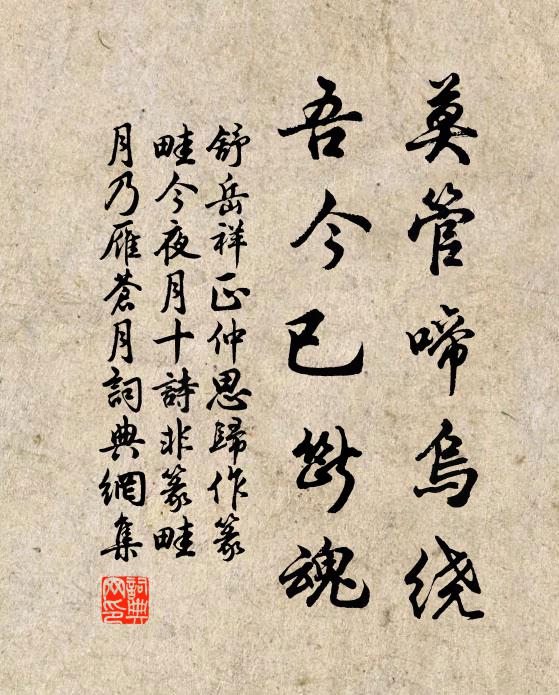 莫管啼烏绕
吾今已断魂
舒岳祥正仲思歸作篆
畦今夜月十詩非篆畦
月乃雁蒼月詞典網集
詞典网印